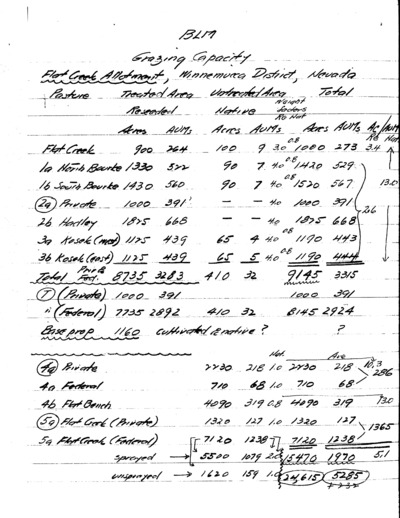 BLM
Grazing Capacity
Flat Creek Allotment, Winnemucca District, Nevada
Pasture Treated Area Untreated Area Total
Reseeded Native
Acres AUMs Acres AUMs Acres AUMs
Flat Creek 900 264 100 9 3.0 0.8 1000 273 3.4
1a North Bourke 1330 522 90 7 4.0 0.8 1420 529
1b South Bourke 1430 560 90 7 4.0 0.8 1520 567 13.0
2a Private 1000 391 - - 4.0 1000 391
2b Hadley 1825 668 - - 4.0 1825 668 2.6
3a Kosek (west) 1125 439 65 4 4.0 0.8 1190 443
3b Kosek (east) 1125 439 65 5 4.0 0.8 1190 444
Total Priv & Fed. 8735 3283 410 32 9145 3315
(Private) 1000 391 1000 391
" (Federal) 7735 2892 410 32 8145 2924
Base prop 1160 cultivated & native ? ?
4a Private 2230 218 1.0 2230 218 10.3
4a Federal 710 68 1.0 710 68 286
4b Flat Bench 4090 319 0.8 4090 319 13.0
5a Flat Creek (Private) 1320 127 1.0 1320 127
5a Flat Creek (Federal) 7120 1238 7120 1238 1365
sprayed → 5500 1079 2.0 15470 1970 5.1
unsprayed → 1620 159 1.0 24,615 5285